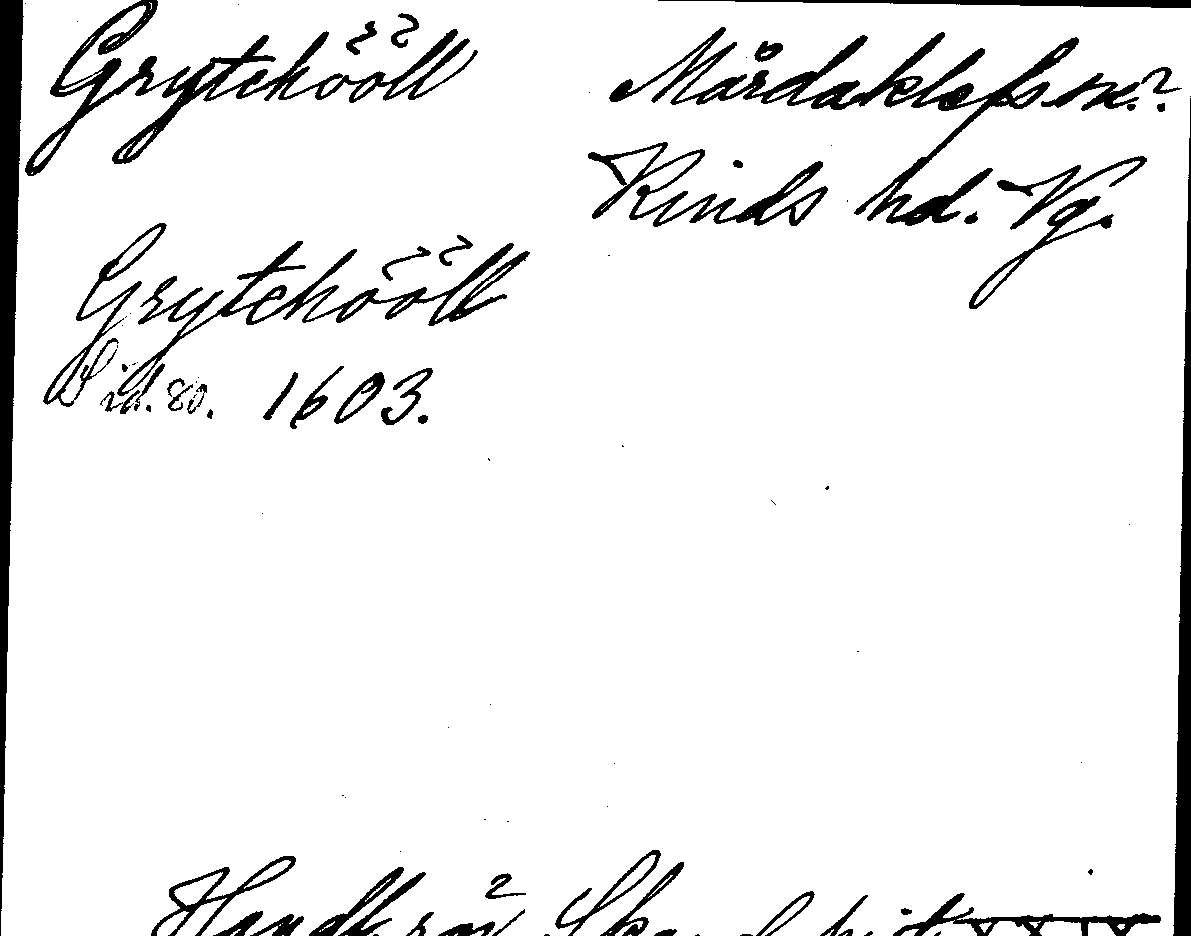 Grytehööll Mårdaklefs sn.?
Kinds hd. Vg.
Grytehööll
Sid. 80. 1603.
Handl. rör. Skand. hist. XXXIV